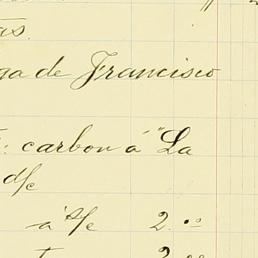 as.
ga de Francisco
: carbon á "La
d/c
á S/c 2.00
2.00